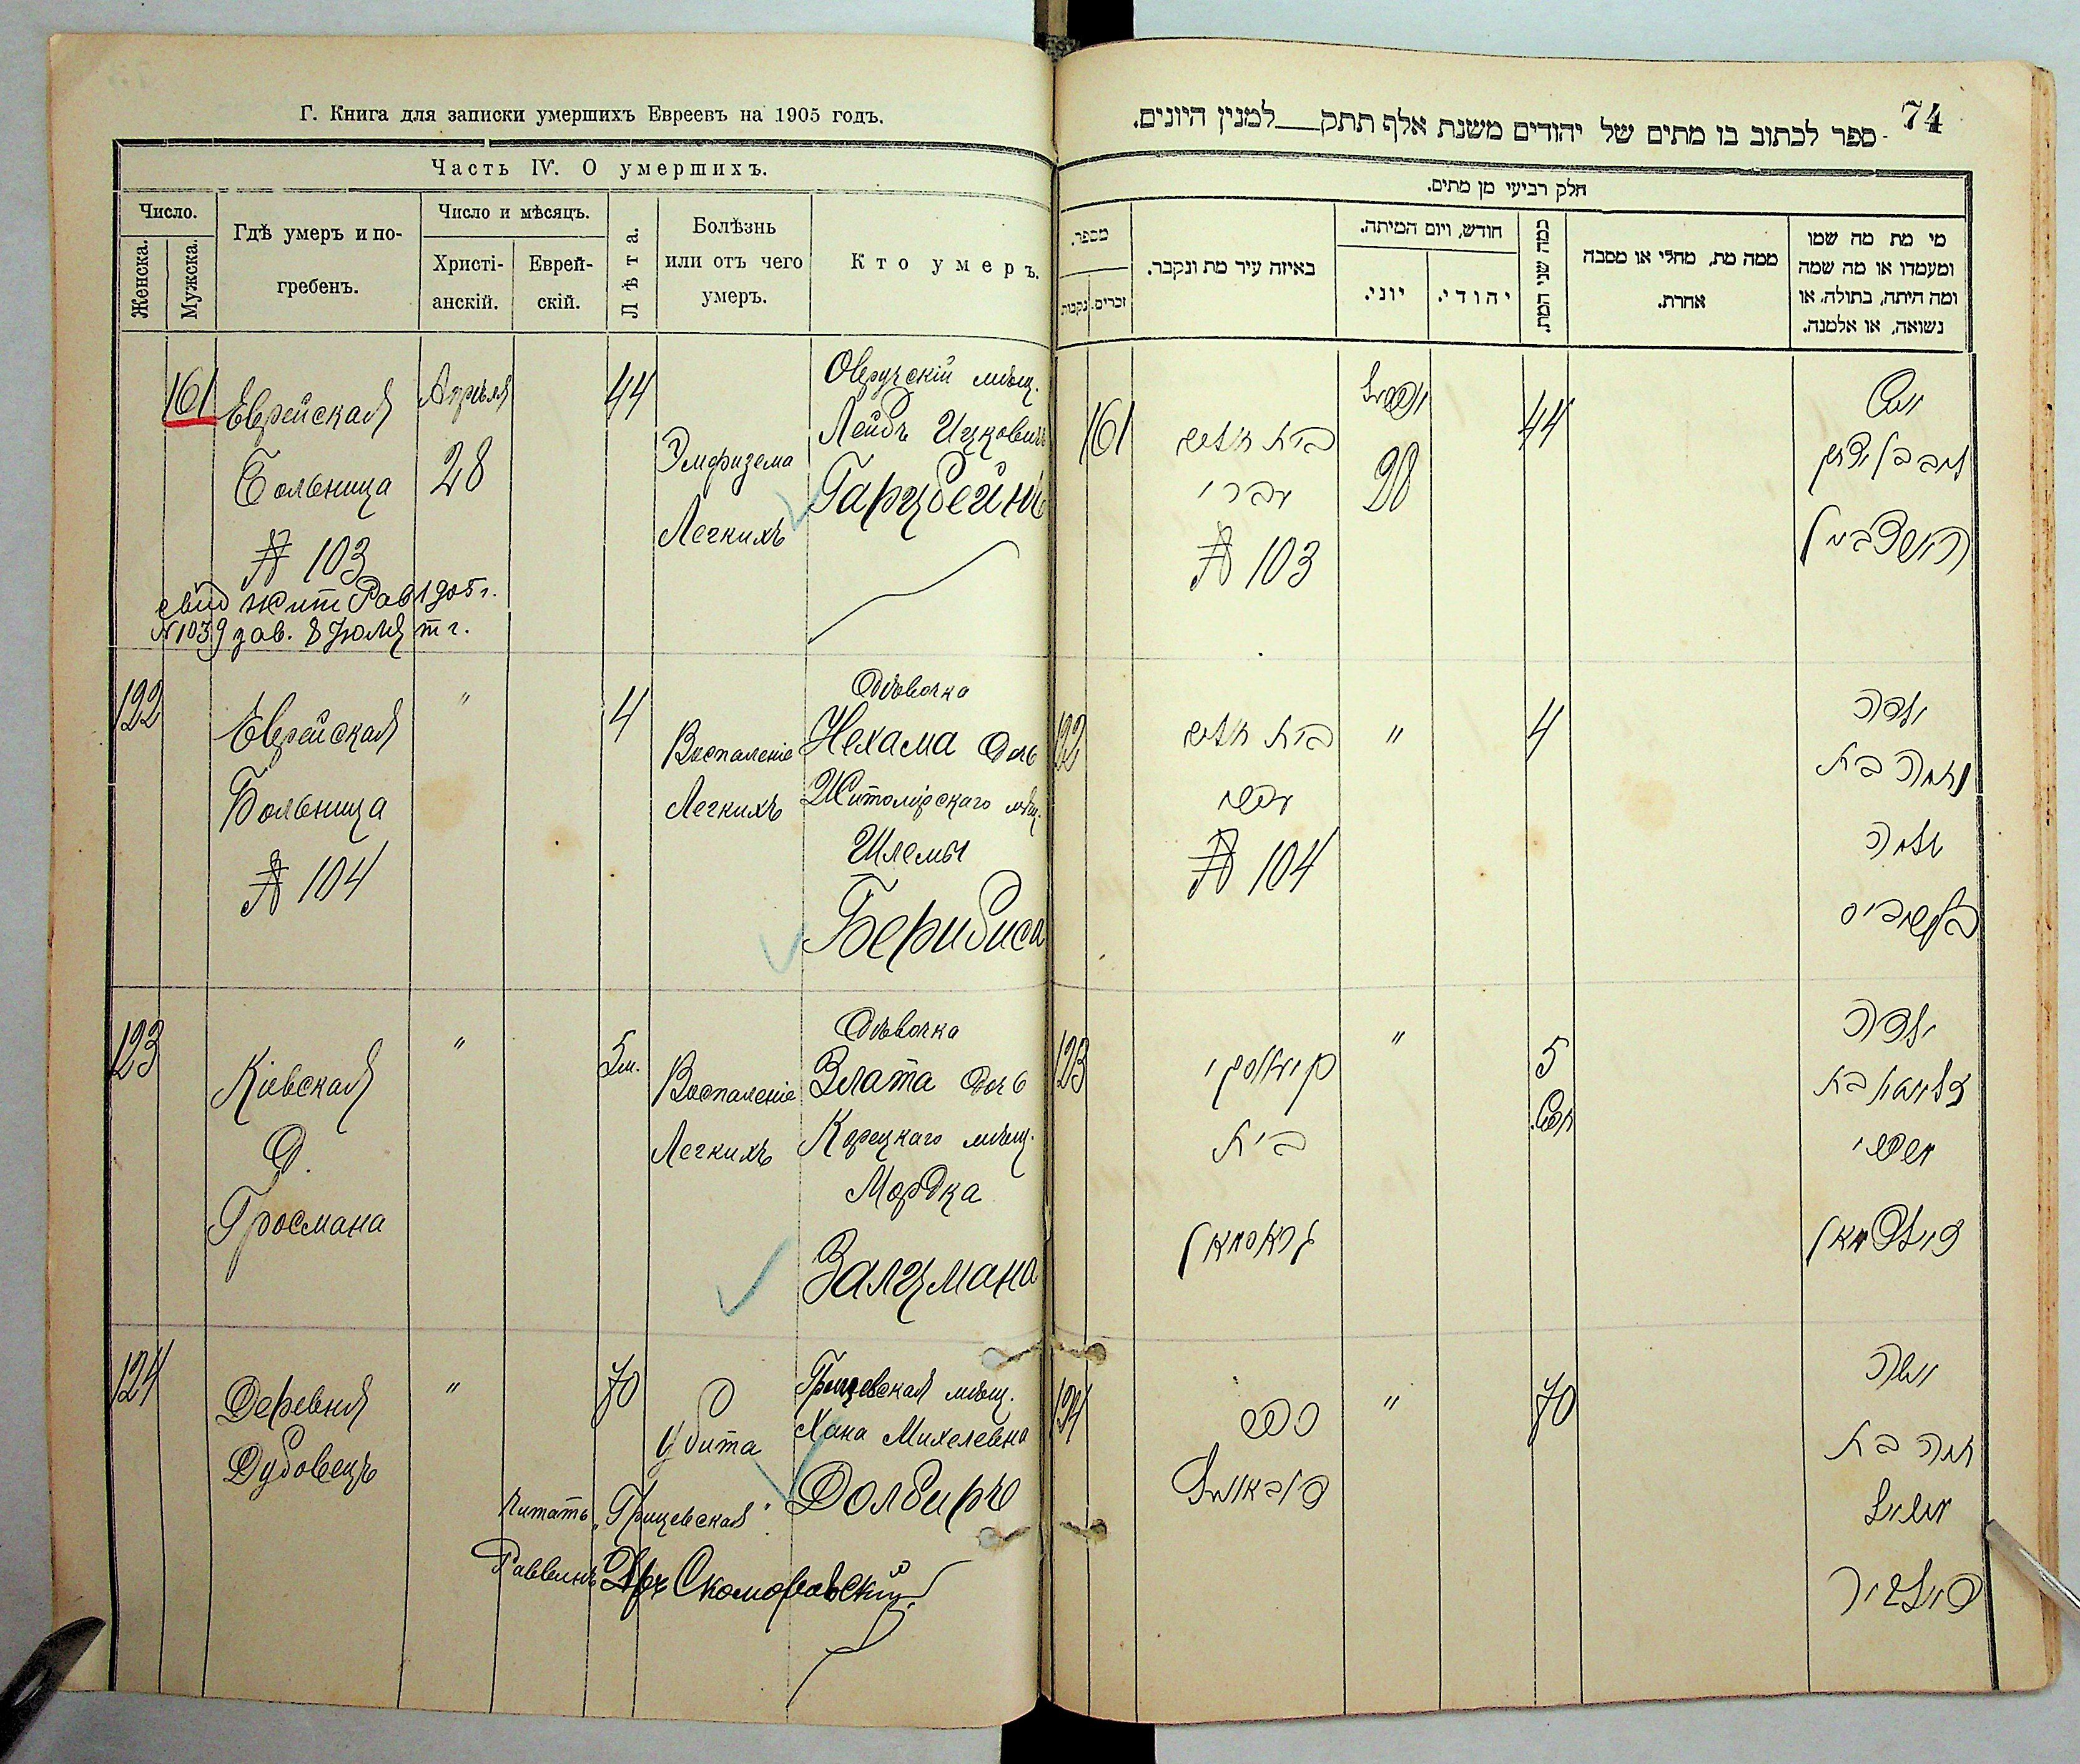 Г. Книга для записки умершихъ Евреевъ на 1905 годъ.
Часть IV. О умершихъ.
Число.
Женска.
Мужска.
Гдѣ умеръ и по-
гребенъ.
Число и мѣсяцъ.
Христі-
анскій.
Еврей-
скій.
Лѣта.
Болѣзнь
или отъ чего
умеръ.
Кто умеръ.
161
Еврейская
Больница
№ 103
Апрѣля
28
44
Эмфизема
Легкихъ
Овручскій мѣщ.
Лейбъ Ицковичъ
Гарцбейнъ
свид Жит Рав 1905 г.
№ 1039 зав. 8 Іюля т г.
122
Еврейская
Больница
№ 104
"
4
Воспаленіе
Легкихъ
Дѣвочка
Нехама дочь
Житомірскаго мѣщ.
Шлемы
Берибиса
123
Кіевская
Д.
Гросмана
"
5 м.
Воспаленіе
Легкихъ
Дѣвочка
Злата дочь
Корецкаго мѣщ.
Мордка
Залцмана
124
Деревня
Дубовецъ
"
70
Убита
Грицевская мѣщ.
Хана Михелевна
Долбиръ
Читать „Грицевская".
Раввинъ Д-ръ Скоморовскій
74
ספר לכתוב בו מתים של יהודים משנת אלף תתק___למנין היונים.
חלק רביעי מן מתים.
מספר.
נקבות.
זכרים.
באיזה עיר מת ונקבר.
חודש, ויום המיתה.
יוני.
יהודי.
כמה שני המת.
ממה מת, מחלי או מסבה
אחרת.
מי מת מה שמו
ומעמדו או מה שמה
ומה היתה, בתולה, או
נשואה, או אלמנה.
161
בית חולים
עברי
№ 103
אפריל
28
44
איש
ליב בן יצחק
הארצביין
122
בית חולים
עברי
№ 104
"
4
ילדה
נחמה בת
שלמה
123
קיעווסקי
בית
גראסמאן
"
5
חדש.
ילדה
זלאטא בת
מרדכי
זאלצמאן
124
כפר
דובאוועץ
"
70
אשה
חנה בת
מיכל
דאלביר